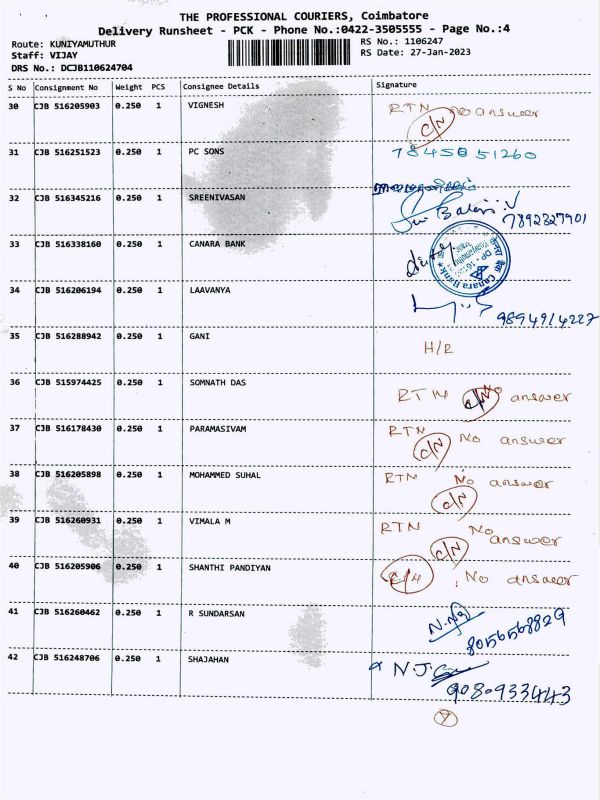 THE PROFESSIONAL COURIERS, Coimbatore
Delivery Runsheet - PCK - Phone No.:0422-3505555 - Page No.:4
Route: KUNIYAMUTHUR RS No.: 1106247
Staff: VIJAY RS Date: 27-Jan-2023
DRS No.: DCJB110624704
S No Consignment No Weight PCS Consignee Details Signature
30 CJB 516205903 0.250 1 VIGNESH RTN no answer
C/N
31 CJB 516251523 0.250 1 PC SONS 7845851260
32 CJB 516345216 0.250 1 SREENIVASAN
7892327901
33 CJB 516338160 0.250 1 CANARA BANK
Canara Bank
34 CJB 516206194 0.250 1 LAAVANYA
9894914227
35 CJB 516288942 0.250 1 GANI
H/R
36 CJB 515974425 0.250 1 SOMNATH DAS
RTN C/N No answer
37 CJB 516178430 0.250 1 PARAMASIVAM RTN
C/N No answer
38 CJB 516205898 0.250 1 MOHAMMED SUHAL RTN No answer
C/N
39 CJB 516260931 0.250 1 VIMALA M RTN No
C/N answer
40 CJB 516205906 0.250 1 SHANTHI PANDIYAN C/N No answer
41 CJB 516260462 0.250 1 R SUNDARSAN
8056568829
42 CJB 516248706 0.250 1 SHAJAHAN N.J.
9080933443